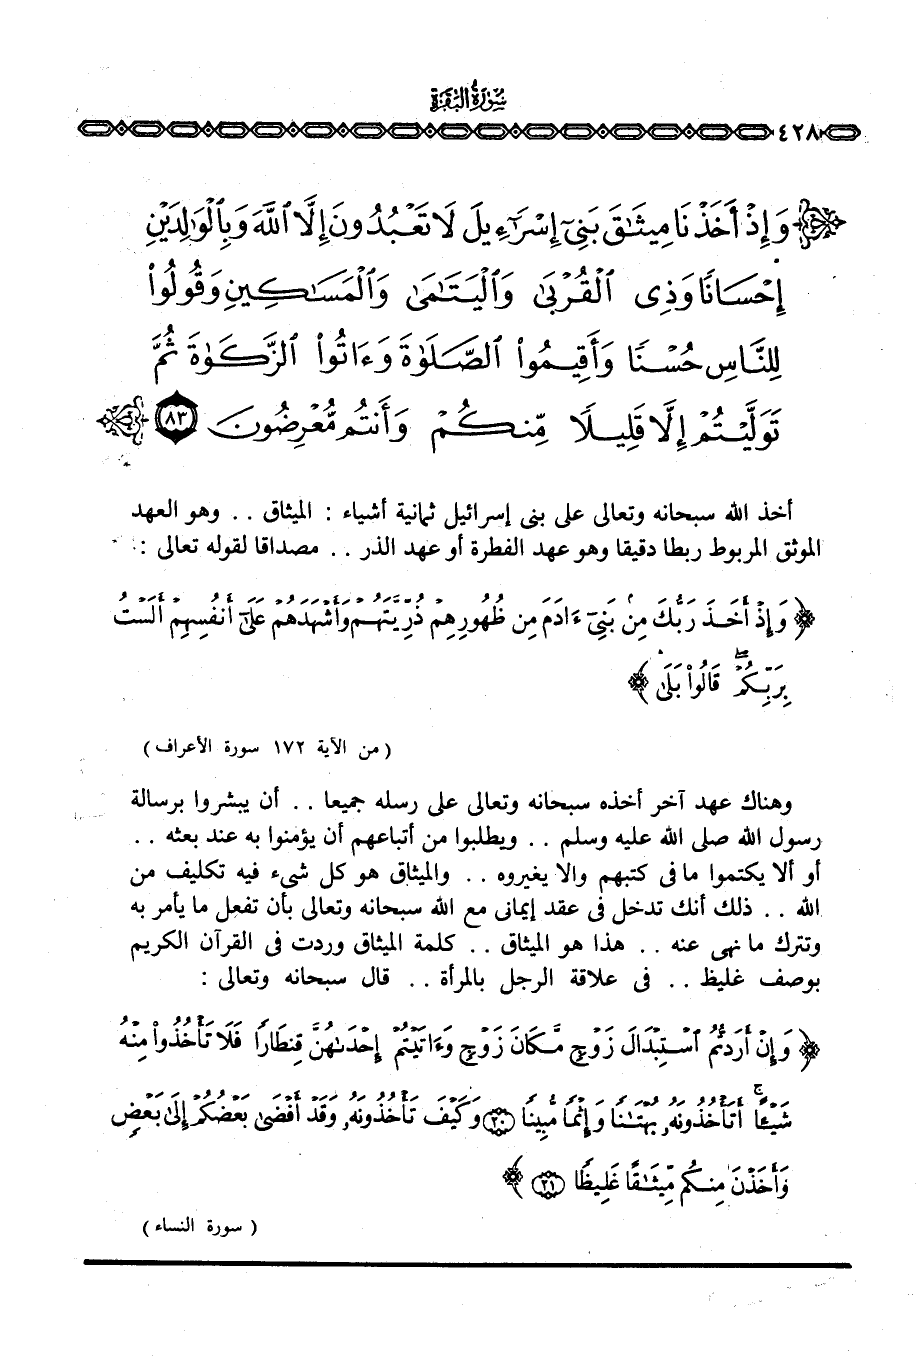 سورة البقرة
٤٢٨
وَإِذْ أَخَذْنَا مِيثَٰقَ بَنِىٓ إِسْرَٰٓءِيلَ لَا تَعْبُدُونَ إِلَّا ٱللَّهَ وَبِٱلْوَٰلِدَيْنِ
إِحْسَانًا وَذِى ٱلْقُرْبَىٰ وَٱلْيَتَٰمَىٰ وَٱلْمَسَٰكِينِ وَقُولُوا۟
لِلنَّاسِ حُسْنًا وَأَقِيمُوا۟ ٱلصَّلَوٰةَ وَءَاتُوا۟ ٱلزَّكَوٰةَ ثُمَّ
تَوَلَّيْتُمْ إِلَّا قَلِيلًا مِّنكُمْ وَأَنتُم مُّعْرِضُونَ ٨٣
أخذ الله سبحانه وتعالى على بنى إسرائيل ثمانية أشياء : الميثاق . . وهو العهد
الموثق المربوط ربطا دقيقا وهو عهد الفطرة أو عهد الذر . . مصداقا لقوله تعالى :
﴿ وَإِذْ أَخَذَ رَبُّكَ مِنۢ بَنِىٓ ءَادَمَ مِن ظُهُورِهِمْ ذُرِّيَّتَهُمْ وَأَشْهَدَهُمْ عَلَىٰٓ أَنفُسِهِمْ أَلَسْتُ
بِرَبِّكُمْ ۖ قَالُوا۟ بَلَىٰ ﴾
( من الآية ١٧٢ سورة الأعراف )
وهناك عهد آخر أخذه سبحانه وتعالى على رسله جميعا . . أن يبشروا برسالة
رسول الله صلى الله عليه وسلم . . ويطلبوا من أتباعهم أن يؤمنوا به عند بعثه . .
أو ألا يكتموا ما فى كتبهم وإلا يغيروه . . والميثاق هو كل شىء فيه تكليف من
الله . . ذلك أنك تدخل فى عقد إيمانى مع الله سبحانه وتعالى بأن تفعل ما يأمر به
وتترك ما نهى عنه . . هذا هو الميثاق . . كلمة الميثاق وردت فى القرآن الكريم
بوصف غليظ . . فى علاقة الرجل بالمرأة . . قال سبحانه وتعالى :
﴿ وَإِنْ أَرَدتُّمُ ٱسْتِبْدَالَ زَوْجٍ مَّكَانَ زَوْجٍ وَءَاتَيْتُمْ إِحْدَىٰهُنَّ قِنطَارًا فَلَا تَأْخُذُوا۟ مِنْهُ
شَيْـًٔا ۚ أَتَأْخُذُونَهُۥ بُهْتَٰنًا وَإِثْمًا مُّبِينًا ٢٠ وَكَيْفَ تَأْخُذُونَهُۥ وَقَدْ أَفْضَىٰ بَعْضُكُمْ إِلَىٰ بَعْضٍ
وَأَخَذْنَ مِنكُم مِّيثَٰقًا غَلِيظًا ٢١ ﴾
( سورة النساء )